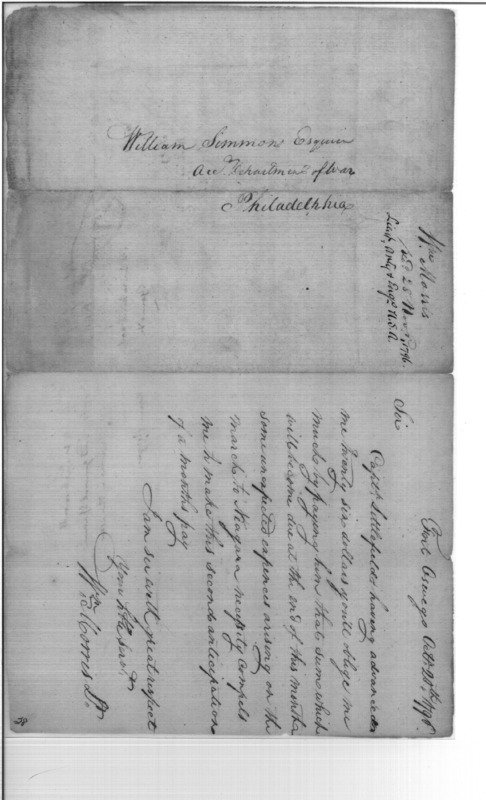 William Simmons Esquire
Acc Department of War
Philadelphia
Wm Morris
recd 25 Novr. 1796.
Lieut, Arty & Engs. U.S.A.
Fort Oswego Octr. 20th 1796
Sir
Captn. Littlefield having advanced
me twenty six dollars you'll oblige me
much by paying him that sum which
will become due at the end of this month
some unexpected expences arising on the
march to Niagara necessity compels
me to make this second anticipation
of a months pay
I am sir with great respect
Your hble servt.
Wm Morris Lt.